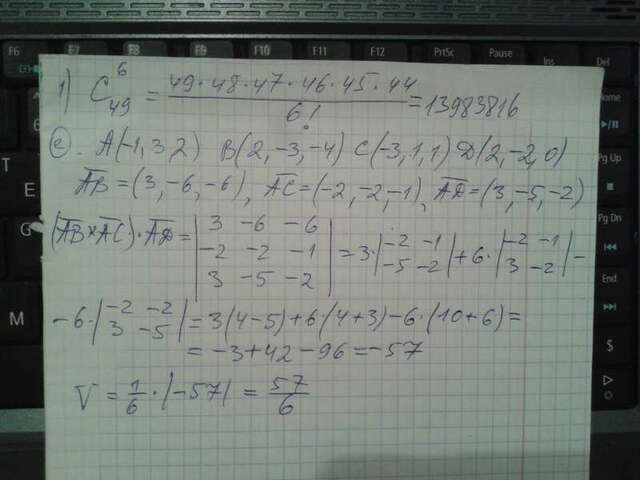 F6 F7 F8 F9 F10 F11 F12 PrtSc Pause Ins Del
1) C₄₉⁶ = 49·48·47·46·45·44 / 6! = 13983816
2). A(-1,3,2) B(2,-3,-4) C(-3,1,1) D(2,-2,0)
AB = (3,-6,-6), AC = (-2,-2,-1), AD = (3,-5,-2)
(AB×AC)·AD = |3 -6 -6; -2 -2 -1; 3 -5 -2| = 3·|-2 -1; -5 -2| + 6·|-2 -1; 3 -2| -
-6·|-2 -2; 3 -5| = 3(4-5)+6·(4+3)-6·(10+6) =
= -3+42-96 = -57
V = 1/6·|-57| = 57/6
6
T
E
G
M
Home
Pg Up
Pg Dn
End
$